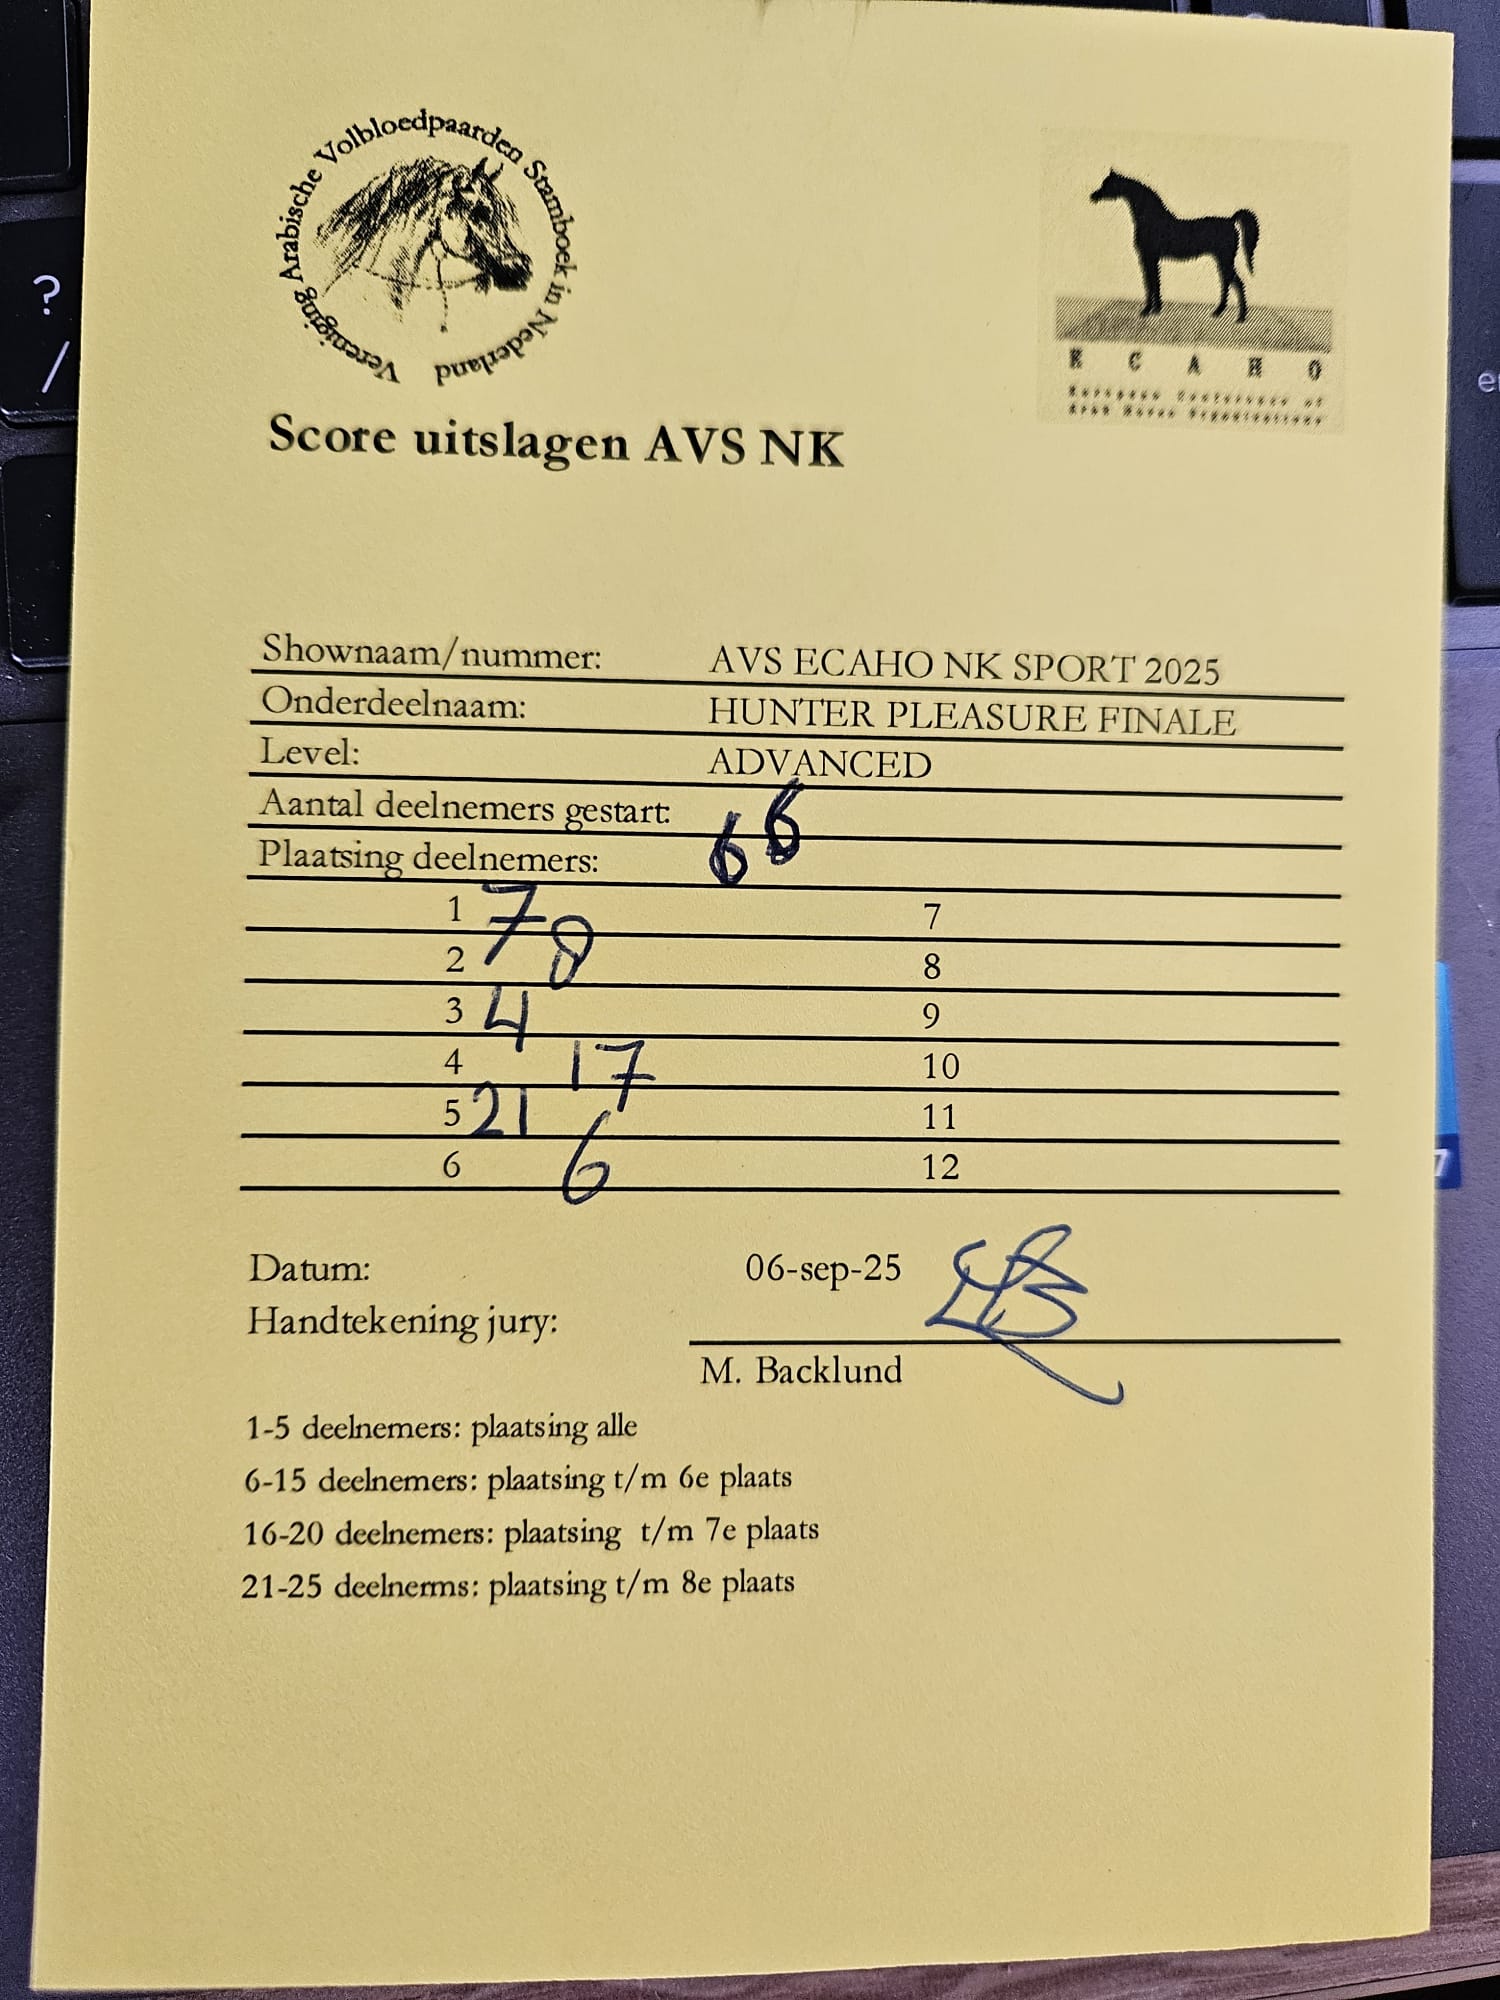 Vereniging Arabische Volbloedpaarden Stamboek in Nederland
E C A H O
European Conference of
Arab Horse Organizations
Score uitslagen AVS NK
Shownaam/nummer: AVS ECAHO NK SPORT 2025
Onderdeelnaam: HUNTER PLEASURE FINALE
Level: ADVANCED
Aantal deelnemers gestart: 6 6
Plaatsing deelnemers:
1 7 7
2 8 8
3 4 9
4 17 10
5 21 11
6 6 12
Datum: 06-sep-25
Handtekening jury:
M. Backlund
1-5 deelnemers: plaatsing alle
6-15 deelnemers: plaatsing t/m 6e plaats
16-20 deelnemers: plaatsing t/m 7e plaats
21-25 deelnerms: plaatsing t/m 8e plaats
?
/